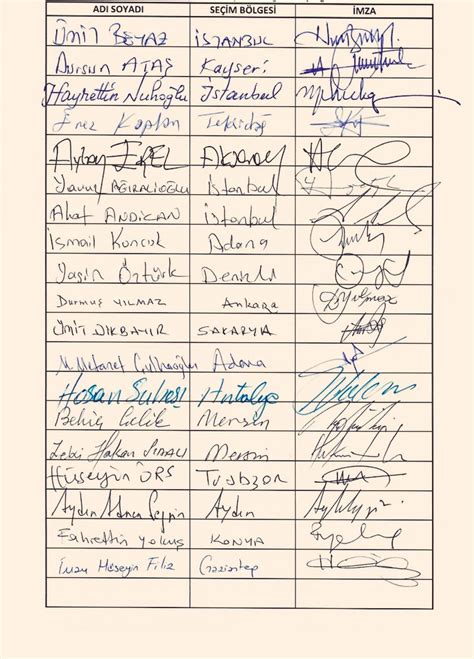 ADI SOYADI SEÇİM BÖLGESİ İMZA
Ümit BEYAZ İSTANBUL
Dursun ATAŞ Kayseri
Hayrettin Nuhoğlu İstanbul
Enez Kaplan Tekirdağ
Ayhan EREL Aksaray
Yavuz AĞIRALİOĞLU İstanbul
Ahat ANDİCAN İstanbul
İsmail Koncuk Adana
Yasin Öztürk Denizli
Durmuş YILMAZ Ankara
Ümit DİKBAYIR SAKARYA
M. Metanet Çulhaoğlu Adana
Hasan Subaşı Antalya
Behiç Çelik Mersin
Zeki Hakan SIDALI Mersin
Hüseyin ÖRS Trabzon
Aydın Adnan Sezgin Aydın
Fahrettin Yokuş KONYA
İmam Hüseyin Filiz Gaziantep